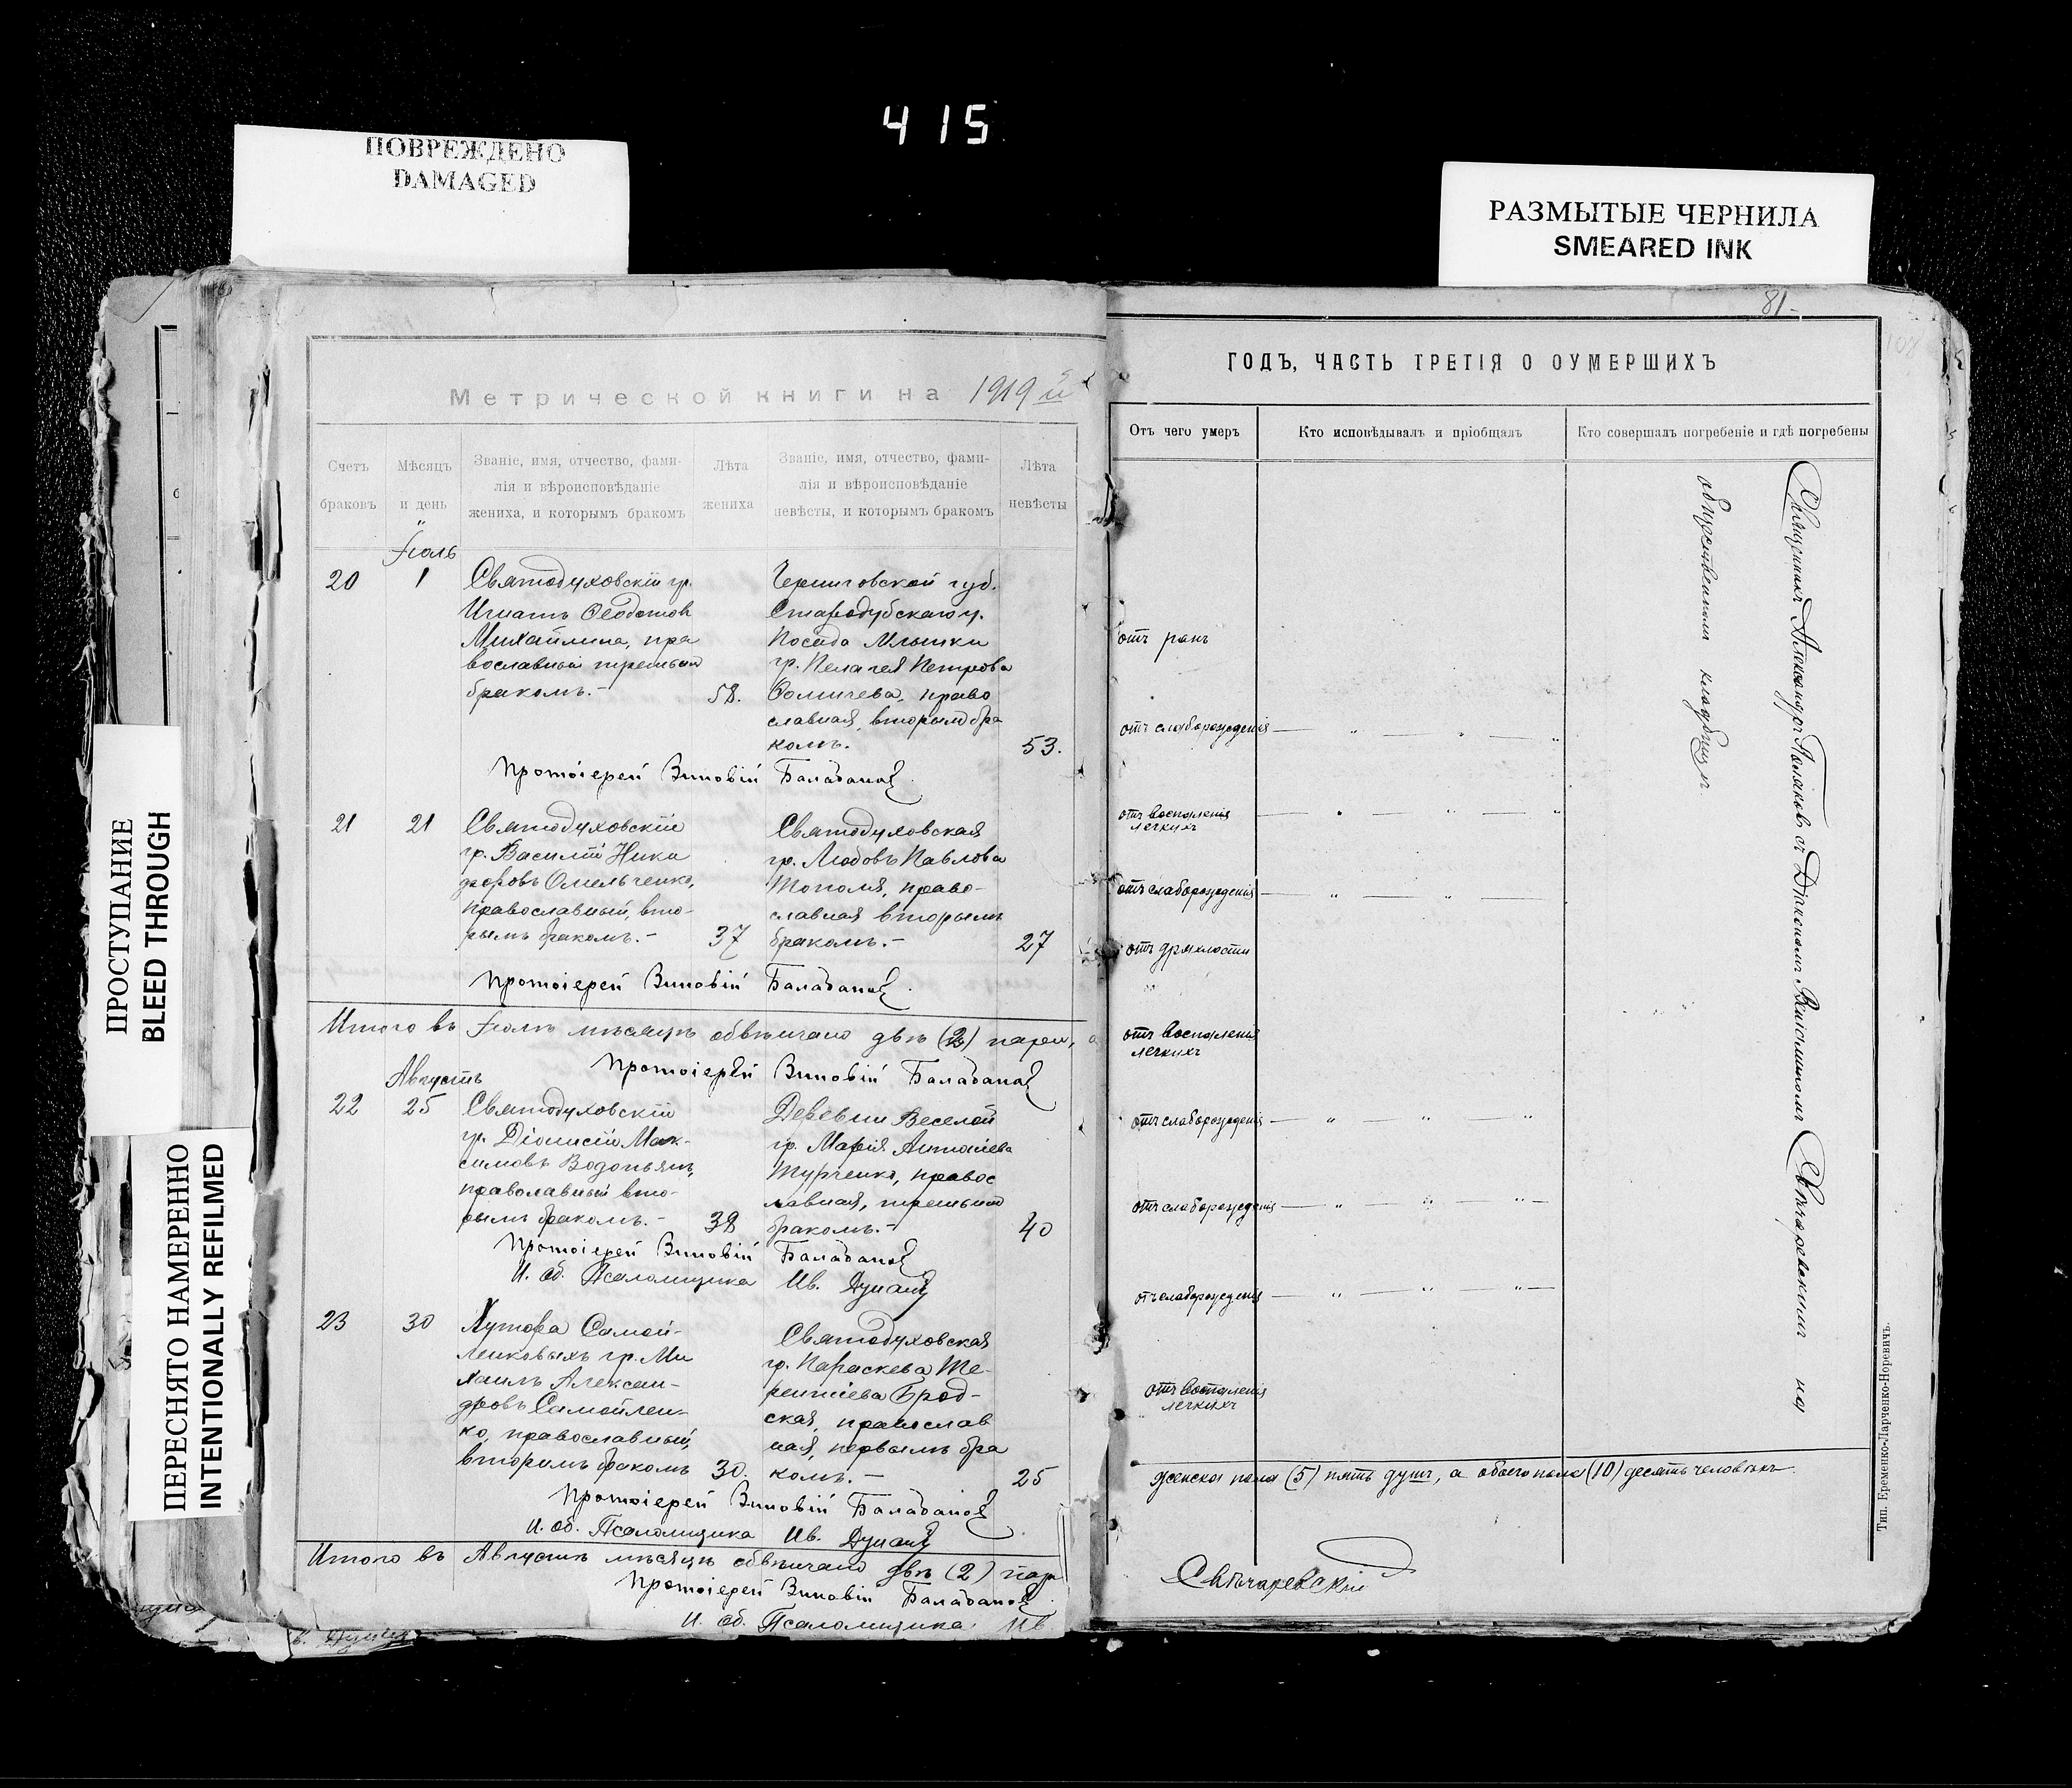 415
ПОВРЕЖДЕНО
DAMAGED
РАЗМЫТЫЕ ЧЕРНИЛА
SMEARED INK
ПРОСТУПАНИЕ
BLEED THROUGH
ПЕРЕСНЯТО НАМЕРЕННО
INTENTIONALLY REFILMED
Метрической книги на 1919 й
Счетъ браковъ
Мѣсяцъ и день
Званіе, имя, отчество, фами-
лія и вѣроисповѣданіе
жениха, и которымъ бракомъ
Лѣта жениха
Званіе, имя, отчество, фами-
лія и вѣроисповѣданіе
невѣсты, и которымъ бракомъ
Лѣта невѣсты
Іюль
20 1
Святодуховскій гр.
Игнатъ Ѳеодотов
Михайлина, пра
вославный третьим
бракомъ.-
58.
Черниговской губ.
Стародубскаго у.
Посада Млынки
гр. Пелагея Петрова
Ѳомичева, право
славная, вторымъ бра
комъ.
53.
Протоіерей Зиновій Балабанов
21 21
Святодуховскій
гр. Василій Ники
форовъ Омельченко,
православный, вто-
рымъ бракомъ.-
37
Святодуховская
гр. Любовь Павлова
Тополя, право-
славная вторымъ
бракомъ.-
27
Протоіерей Зиновій Балабанов
Итого въ Іюлѣ мѣсяцѣ обвѣнчано двѣ (2) пары,
Протоіерей Зиновій Балабанов
Августъ
22 25
Святодуховскій
гр. Діонисій Мак-
симовъ Водопьянъ,
православный вто-
рымъ бракомъ.-
38
Деревни Веселой
гр. Марія Антоніева
Турченко, правос
лавная, третьимъ
бракомъ.-
40
Протоіерей Зиновій Балабанов
И. об. Псаломщика Ив. Дунаев
23 30
Хутора Самой-
ленковыхъ гр. Ми
хаилъ Алексан-
дровъ Самойлен-
ко, православный,
вторымъ бракомъ
30.
Святодуховская
гр. Параскева Те-
рентіева Брод-
ская, православ
ная, первымъ бра
комъ.-
25
Протоіерей Зиновій Балабанов
И. об. Псаломщика Ив. Дунаев
Итого въ Августѣ мѣсяцѣ обвѣнчано двѣ (2) пар
Протоіерей Зиновій Балабанов
И. об. Псаломщика Ив.
81-
ГОДЪ, ЧАСТЬ ТРЕТІЯ О ОУМЕРШИХЪ
Отъ чего умеръ
Кто исповѣдывалъ и пріобщалъ
Кто совершалъ погребеніе и гдѣ погребены
отъ ранъ
отъ слаборожденія — " — " — "
отъ воспаленія
легкихъ
— " — " — "
отъ слаборожденія — " — " —
отъ дряхлости
отъ воспаленія
легкихъ
отъ слаборожденія — " — " — "
отъ слаборожденія — " — " — " —
отъ слаборожденія — " — " — " —
отъ воспаленія
легкихъ
Священникъ Александръ Поляковъ съ Діакономъ Веніаминомъ Свѣчаревскимъ на
общественномъ кладбищѣ
женска пола (5) пять душъ, а обоего пола (10) десять человѣкъ.
Свѣчаревскій
Тип. Еременко-Ларченко-Норевичъ.